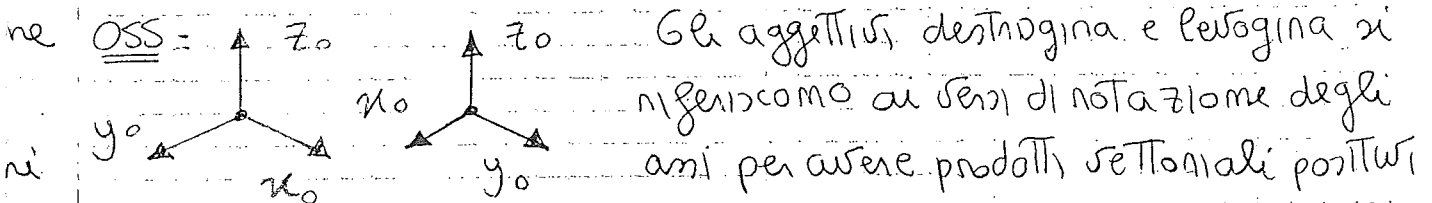 ne OSS: z₀ z₀ Gli aggettivi destrogina e levogina si
y₀ x₀ riferiscono ai versi di rotazione degli
ni x₀ y₀ assi per avere prodotti vettoriali positivi